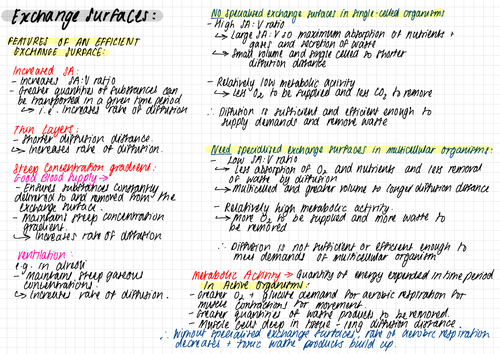 Exchange Surfaces:
FEATURES OF AN EFFICIENT
EXCHANGE SURFACE:
Increased SA:
- Increases SA:V ratio
- Greater quantities of substances can
be transported in a given time period
↳ i.e. Increases rate of diffusion
Thin Layers:
- Shorter diffusion distance.
↳ Increases rate of diffusion.
Steep Concentration gradient:
Good Blood Supply →
- Ensures substances constantly
delivered to and removed from the
exchange surface.
- Maintains steep concentration
gradient.
↳ Increases rate of diffusion
Ventilation:
e.g. in alveoli
- Maintains steep gaseous
concentrations.
↳ Increases rate of diffusion.
No specialised exchange surfaces in single-celled organisms
- High SA:V ratio
↳ Large SA:V so maximum absorption of nutrients +
gases and secretion of waste
↳ Small volume and single celled so shorter
diffusion distance
- Relatively low metabolic activity
↳ Less O₂ to be supplied and less CO₂ to remove
∴ Diffusion is sufficient and efficient enough to
supply demands and remove waste
Need specialised exchange surfaces in multicellular organisms:
- Low SA:V ratio
↳ Less absorption of O₂ and nutrients and less removal
of waste by diffusion
↳ Multicelled and greater volume so longer diffusion distance
- Relatively high metabolic activity.
↳ More O₂ to be supplied and more waste to
be removed
∴ Diffusion is not sufficient or efficient enough to
meet demands of multicellular organism
Metabolic Activity → Quantity of energy expended in time period
In Active Organisms:
- Greater O₂ + glucose demand for aerobic respiration for
muscle contractions for movement.
- Greater quantities of waste products to be removed.
- Muscle cells deep in tissue - long diffusion distance.
∴ Without specialised exchange surfaces, rate of aerobic respiration
decreases + toxic waste products build up.